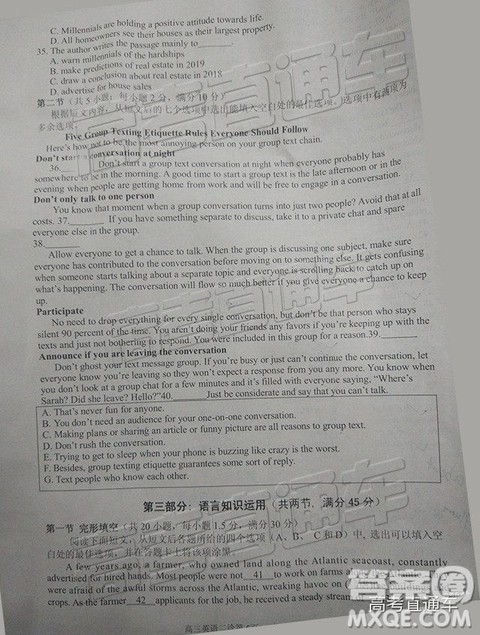 C. Millennials are holding a positive attitude towards life.
D. All homeowners see their houses as their largest property.
35. The author writes the passage mainly to______
A. warn millennials of the hardships
B. make predictions of real estate in 2019
C. draw a conclusion about real estate in 2018
D. advertise for house sales
第二节（共 5 小题；每小题 2 分，满分 10 分）
根据短文内容，从短文后的七个选项中选出能填入空白处的最佳选项。选项中有两项为
多余选项。
Five Group Texting Etiquette Rules Everyone Should Follow
Here's how not to be the most annoying person on your group text chain.
Don't start a conversation at night
36.______ Don't start a group text conversation at night when everyone probably has
somewhere to be in the morning. A good time to start a group text is the late afternoon or in the
evening when people are getting home from work and will be free to engage in a conversation.
Don't only talk to one person
You know that moment when a group conversation turns into just two people? Avoid that at all
costs. 37.______ If you have something separate to discuss, take it to a private chat and spare
everyone else in the group.
38.______
Allow everyone to get a chance to talk. When the group is discussing one subject, make sure
everyone has contributed to the conversation before moving on to something else. It gets confusing
when someone starts talking about a separate topic and everyone is scrolling back to catch up on
what's happening. The conversation will flow so much better if you give everyone a chance to keep
up.
Participate
No need to drop everything for every single conversation, but don't be that person who stays
silent 90 percent of the time. You aren't doing your friends any favors if you're keeping up with the
texts and just not bothering to respond. You were included in this group for a reason.39.______
Announce if you are leaving the conversation
Don't ghost your text message group. If you're busy or just can't continue the conversation, let
everyone know you're leaving so they won't expect a response from you any more. You know when
you don't look at a group chat for a few minutes and it's filled with everyone saying, "Where's
Sarah? Did she leave? Hello?"40.______ Just be considerate and say that you can't talk.
A. That's never fun for anyone.
B. You don't need an audience for your one-on-one conversation.
C. Making plans or sharing an article or funny picture are all reasons to group text.
D. Don't rush the conversation.
E. Trying to get to sleep when your phone is buzzing like crazy is the worst.
F. Besides, group texting etiquette guarantees some sort of reply.
G. Text people who know each other.
第三部分：语言知识运用（共两节，满分 45 分）
第一节 完形填空（共 20 小题，每小题 1.5 分，满分 30 分）
阅读下面短文，从短文后各题所给的四个选项（A、B、C 和 D）中，选出可以填入空
白处的最佳选项，并在答题卡上将该项涂黑。
A few years ago, a farmer, who owned land along the Atlantic seacoast, constantly
advertised for hired hands. Most people were not 41 to work on farms
were afraid of the awful storms across the Atlantic, wreaking havoc on
crops. As the farmer 42 applicants for the job, he received a steady stream
高三英语二诊第
高考直通车
高考直通车
高考直通车
答案圈
高考直通车